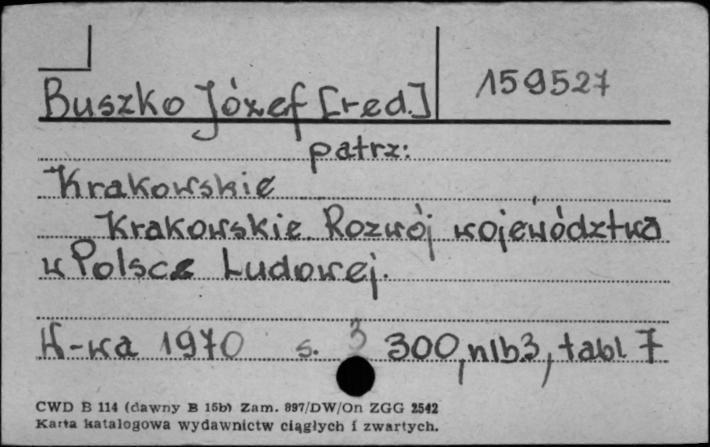 Buszko Józef [red.] 159527
patrz:
Krakowskie
Krakowskie Rozwój województwa
w Polsce Ludowej.
W-wa 1970 s. 3 300, nlb3, tabl 7
CWD B 114 (dawny B 15b) Zam. 897/DW/On ZGG 2542
Karta katalogowa wydawnictw ciągłych i zwartych.